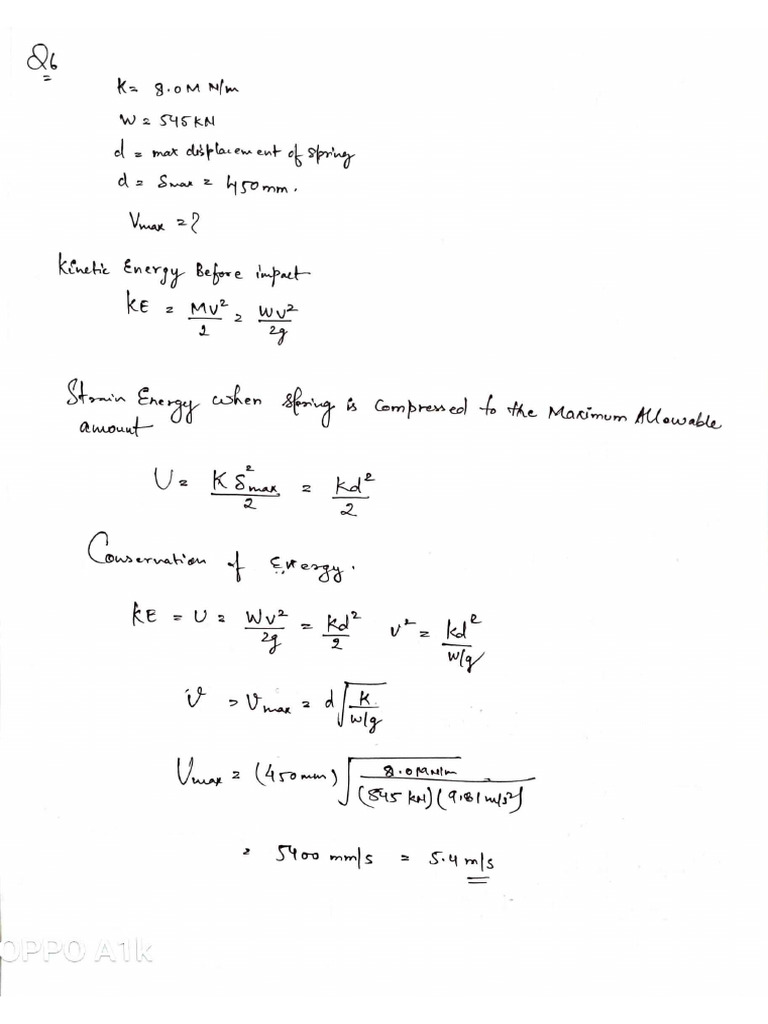 Q6
K= 8.0 M N/m
W = 545 KN
d = max displacement of spring
d = δmax = 450 mm.
Vmax = ?
Kinetic Energy Before impact
KE = MV²/2 = WV²/2g
Strain Energy when spring is compressed to the Maximum Allowable
amount
U = K δ²max/2 = Kd²/2
Conservation of Energy.
KE = U = WV²/2g = Kd²/2 v² = Kd²/W/g
v = Vmax = d√K/W/g
Vmax = (450 mm) √8.0 MN/m/(545 kN)(9.81 m/s²)
= 5400 mm/s = 5.4 m/s
OPPO A1k